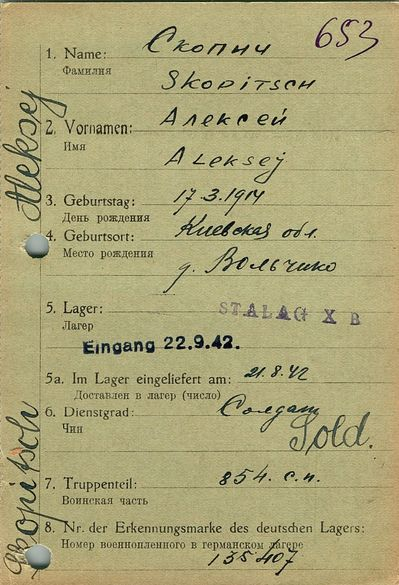 653
Скопич
1. Name:
Фамилия
Skopitsch
2. Vornamen: Алексей
Имя
Aleksej
3. Geburtstag: 17.3.1914
День рождения
4. Geburtsort: Киевская обл.
Место рождения
д. Вольчико
5. Lager: STALAG X B
Лагер
Eingang 22.9.42.
5a. Im Lager eingeliefert am: 21.8.42
Доставлен в лагер (число)
6. Dienstgrad: Солдат
Чин
Sold.
7. Truppenteil: 854. с.п.
Воинская часть
8. Nr. der Erkennungsmarke des deutschen Lagers:
Номер военнопленного в германском лагере
135407
Skopitsch Aleksej